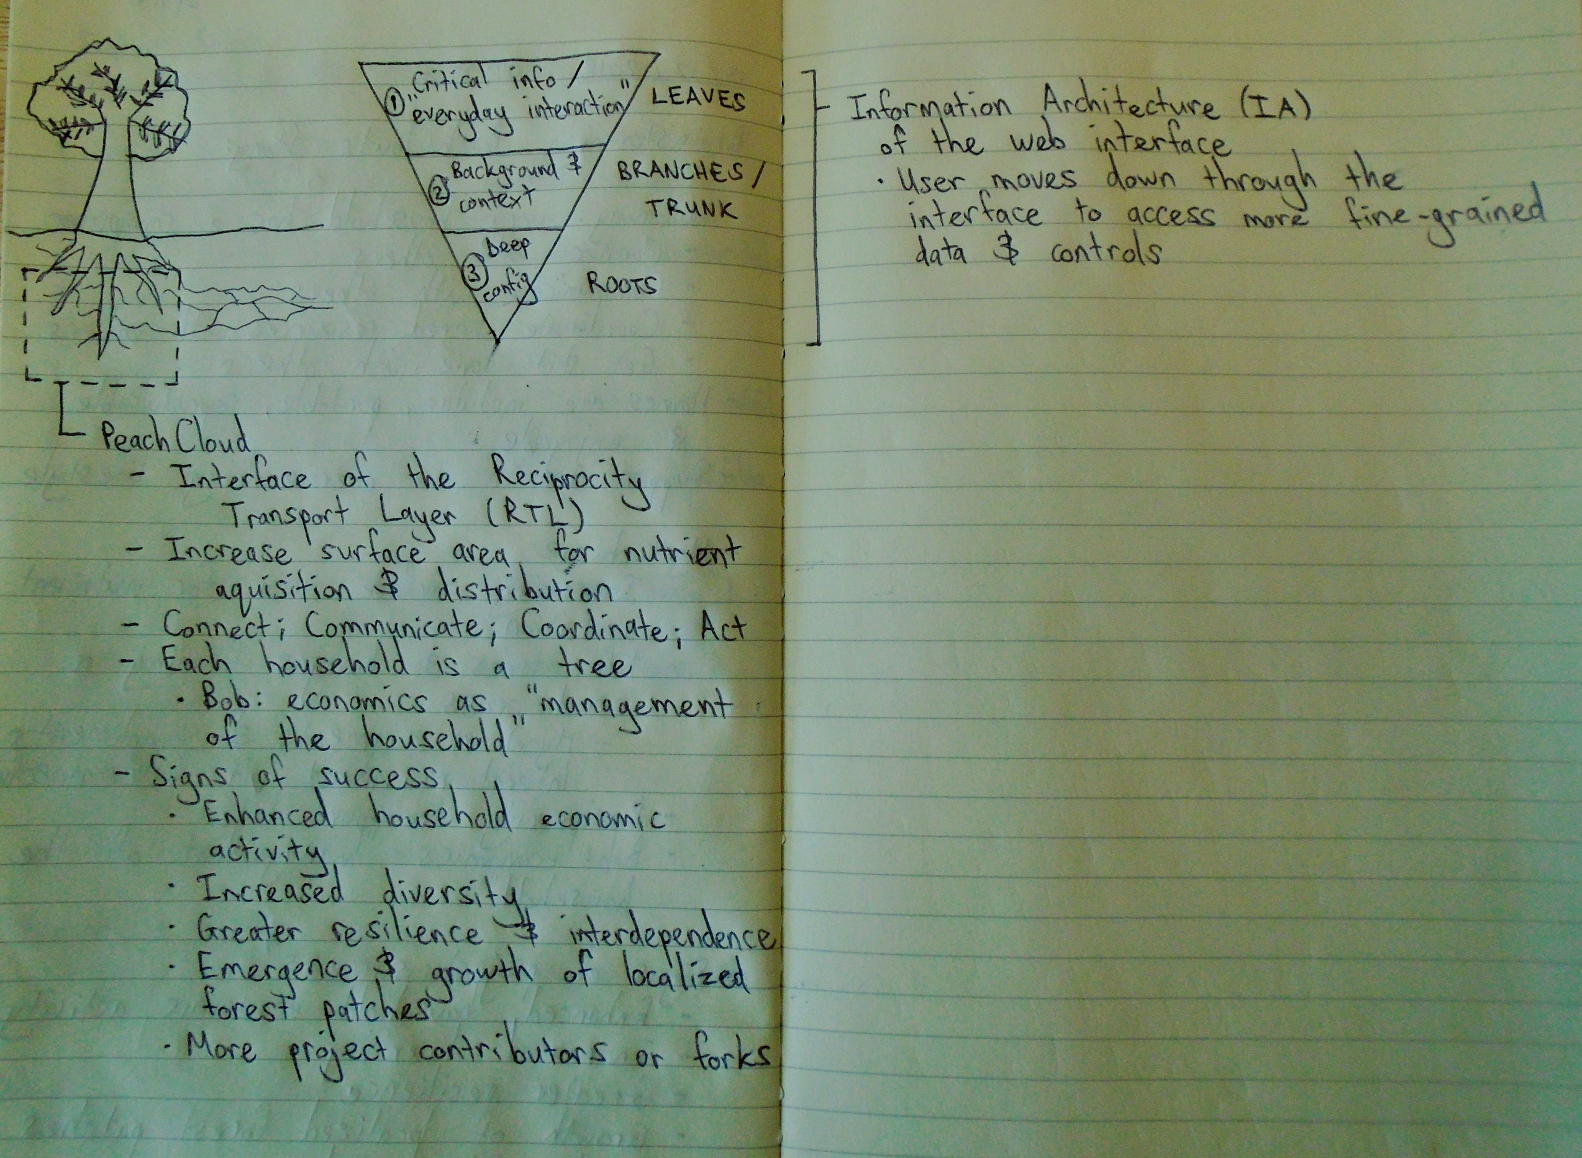 ① Critical info /
"everyday interaction"
LEAVES
② Background &
context
BRANCHES /
TRUNK
③ Deep
config
ROOTS
PeachCloud
- Interface of the Reciprocity
Transport Layer (RTL)
- Increase surface area for nutrient
aquisition & distribution
- Connect; Communicate; Coordinate; Act
- Each household is a tree
· Bob: economics as "management
of the household"
- Signs of success
· Enhanced household economic
activity
· Increased diversity
· Greater resilience & interdependence
· Emergence & growth of localized
forest patches
· More project contributors or forks
- Information Architecture (IA)
of the web interface
· User moves down through the
interface to access more fine-grained
data & controls